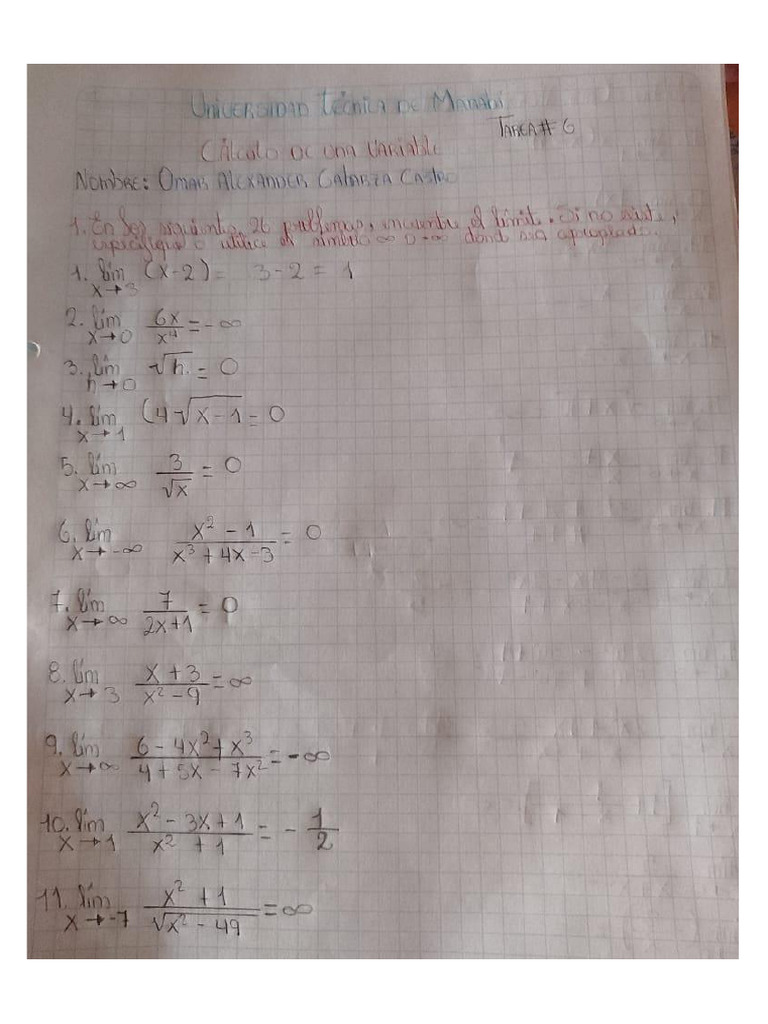 Universidad Técnica de Manabí
Tarea # 6
Cálculo de una Variable
Nombre: Omar Alexander Castro
1. En los siguientes 26 problemas, encuentre el límite. Si no existe,
especifique o utilice el símbolo ∞ o -∞ donde sea apropiado.
1. lím x→3 (x-2) = 3-2 = 1
2. lím x→0 6x/x⁴ = -∞
3. lím h→0 √h = 0
4. lím x→1 (4√x-1 = 0
5. lím x→∞ 3/√x = 0
6. lím x→-∞ x²-1/x³+4x-3 = 0
7. lím x→∞ 7/2x+1 = 0
8. lím x→3 x+3/x²-9 = ∞
9. lím x→∞ 6-4x²+x³/4+5x-7x² = -∞
10. lím x→1 x²-3x+1/x²+1 = -1/2
11. lím x→-7 x²+1/√x²-49 = ∞